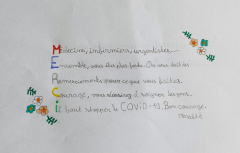 Médecins, infirmiers, urgentistes...
Ensemble, vous êtes plus forts. On vous doit des
Remerciements pour ce que vous faites.
Courage, vous réussissez à soigner les gens.
Il faut stopper le COVID-19. Bon courage.